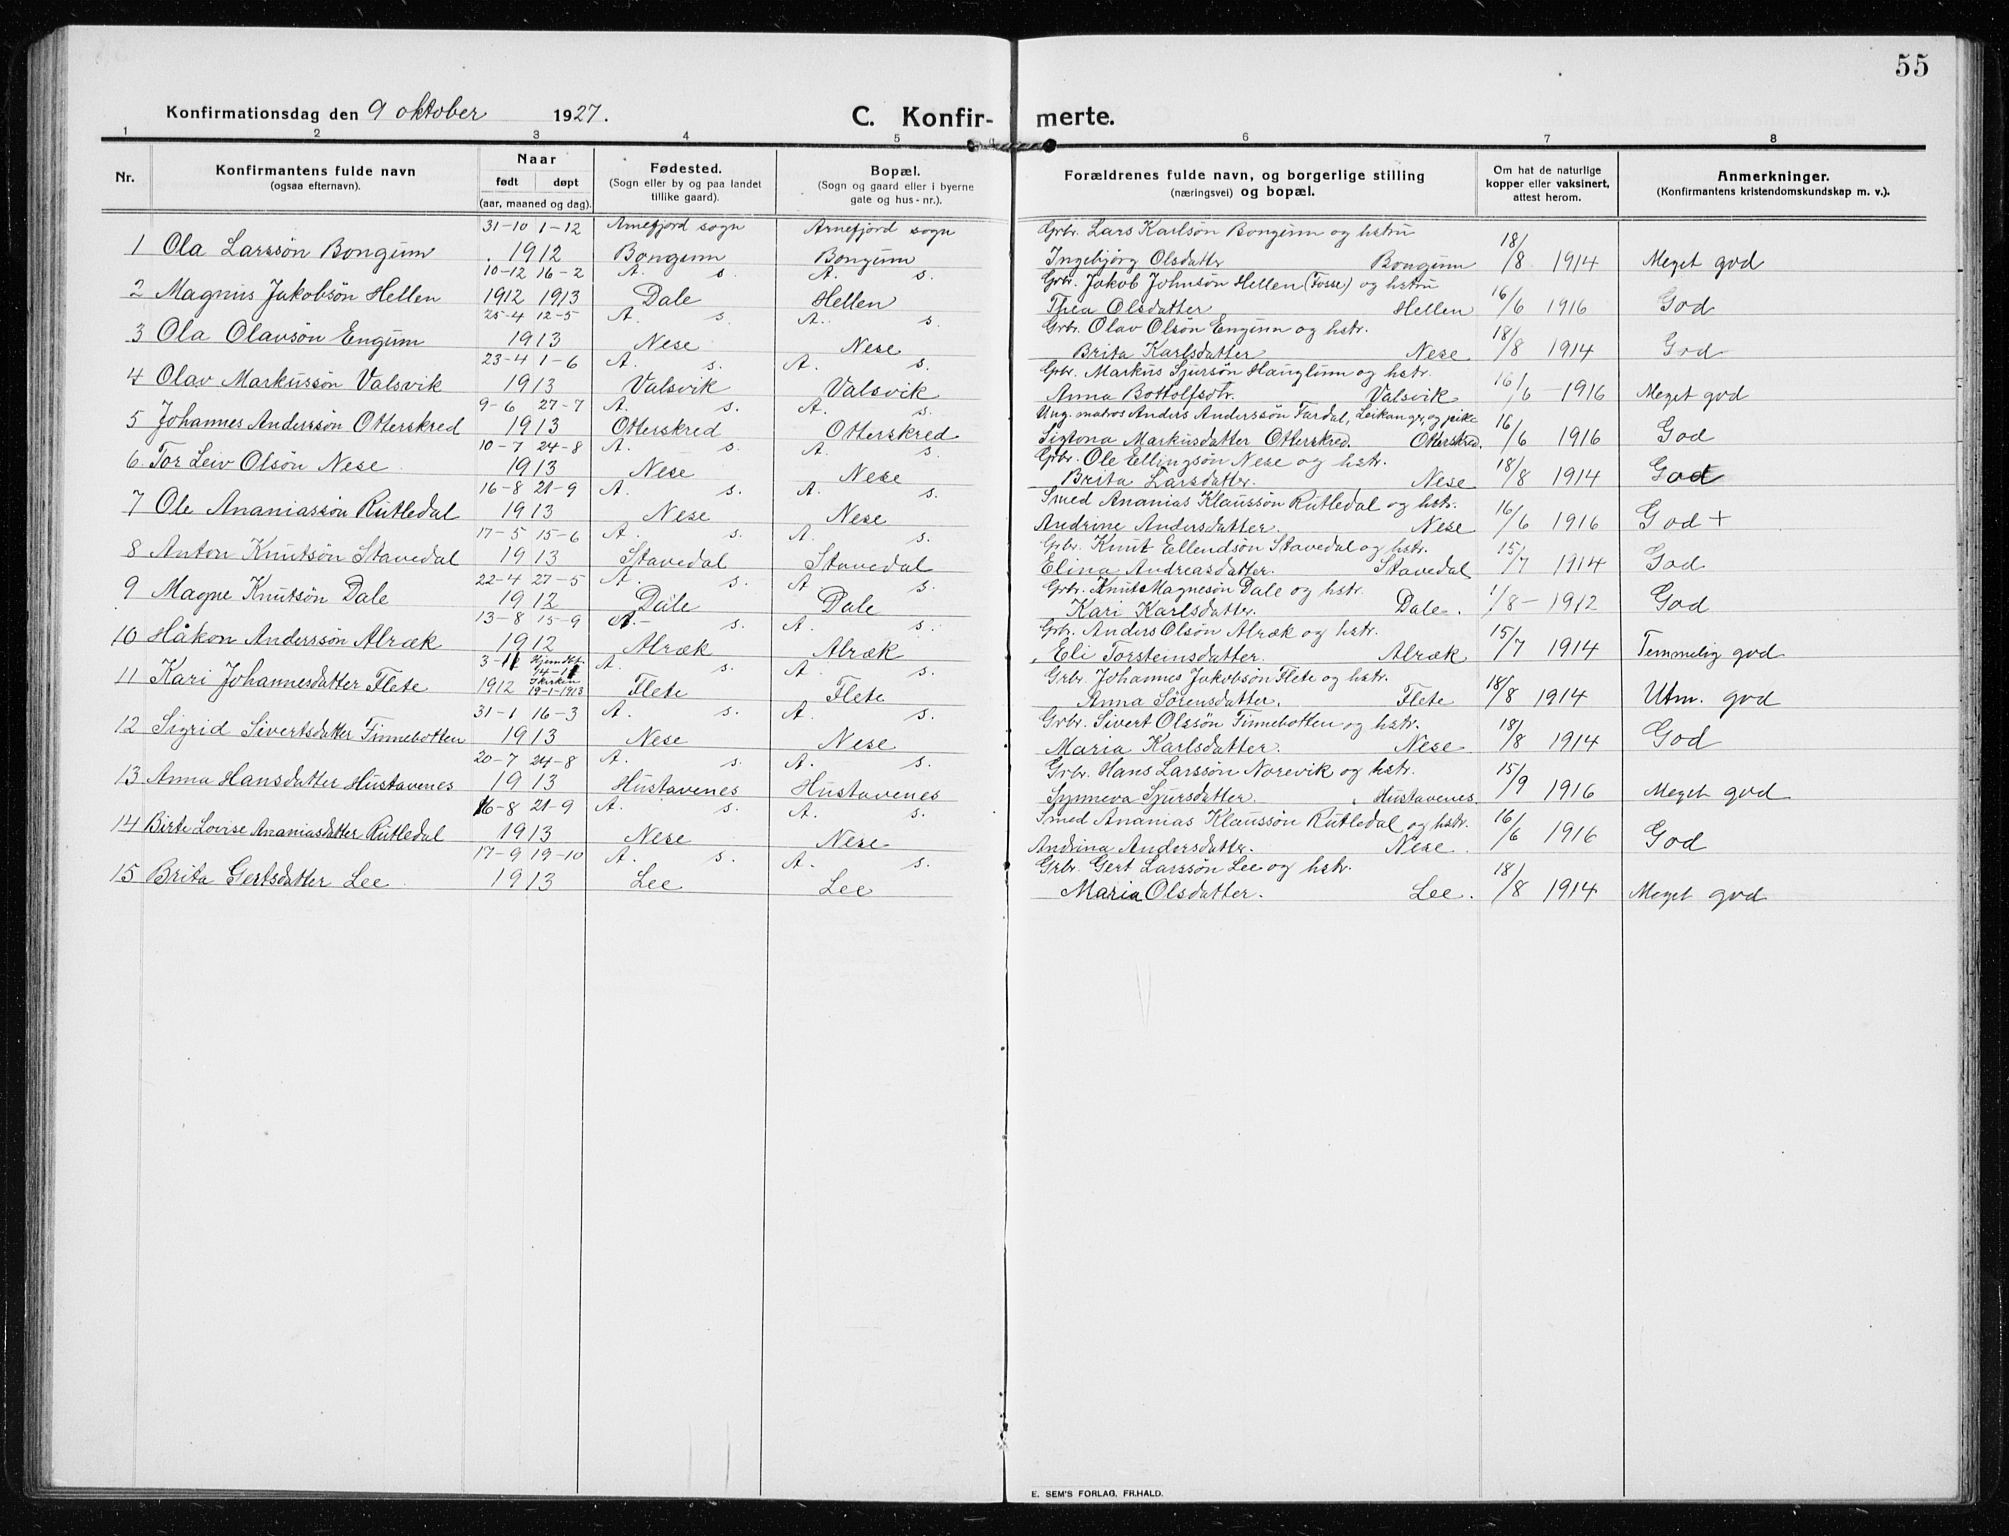 55
Konfirmationsdag den 9 oktober 1927.
C. Konfir- merte.
1 2 3 4 5 6 7 8
Nr.
Konfirmantens fulde navn
(ogsaa efternavn).
Naar
født døpt
(aar, maaned og dag).
Fødested.
(Sogn eller by og paa landet
tillike gaard).
Bopæl.
(Sogn og gaard eller i byerne
gate og hus-nr.).
Forældrenes fulde navn, og borgerlige stilling
(næringsvei) og bopæl.
Om hat de naturlige
kopper eller vaksinert,
attest herom.
Anmerkninger.
(Konfirmantens kristendomskundskap m. v.).
31-10 1-12 Arnefjord sogn Arnefjord sogn Grbr. Lars Karlsön Bongum og hstru
1 Ola Larssön Bongum 1912 Bongum Bongum Ingebjörg Olsdatter Bongum 18/8 1914 Meget god
10-12 16-2 A. s. A. s. Grbr. Jakob Johnsön Hellen (Fosse) og hstru
2 Magnus Jakobsön Hellen 1912 1913 Dale Hellen Thea Olsdatter Hellen 16/6 1916 God
25-4 12-5 A. s. A. s. Grbr. Olav Olsön Engum og hstr.
3 Ola Olavsön Engum 1913 Nese Nese Brita Karlsdatter Nese 18/8 1914 God
23-4 1-6 A. s. A. s. Grbr. Markus Sjursön Hauglum og hstr.
4 Olav Markussön Valsvik 1913 Valsvik Valsvik Anna Bottolfsdtr. Valsvik 16/6 - 1916 Meget god
9-6 27-7 A. s. A. s. Ung. matros Anders Anderssön Fardal, Leikanger, og pike
5 Johannes Anderssön Otterskred 1913 Otterskred Otterskred Sigtona Markusdatter Otterskred. Otterskred. 16/6 1916 God
10-7 24-8 A. s. A. s. Grbr. Ole Ellingsön Nese og hstr.
6 Tor Leiv Olsön Nese 1913 Nese Nese Brita Larsdatter. Nese 18/8 1914 God
16-8 21-9 A. s. A. s. Smed Ananias Klaussön Rutledal og hstr.
7 Ole Ananiassön Rutledal 1913 Nese Nese Andrine Andersdatter. Nese 16/6 1916 God +
17-5 15-6 A. s. A. s. Grbr. Knut Ellendsön Stavedal og hstr.
8 Anton Knutsön Stavedal 1913 Stavedal Stavedal Elina Andreasdatter. Stavedal 15/7 1914 God
22-4 27-5 A. s. A. s. Grbr. Knut Magnesön Dale og hstr.
9 Magne Knutsön Dale 1912 Dale Dale Kari Karlsdatter. Dale. 1/8 - 1912 God
13-8 15-9 A. s. A. s. Grbr. Anders Olsön Alræk og hstr.
10 Håkon Anderssön Alræk 1912 Alræk Alræk Eli Torsteinsdatter. Alræk 15/7 1914 Temmelig god
3-11 Hjemdöpt 14-11 A. s. A. s. Grbr. Johannes Jakobsön Flete og hstr.
11 Kari Johannesdatter Flete 1912 I kirken 19-1-1913 Flete Flete Anna Sörensdatter. Flete 18/8 1914 Utm. god
31-1 16-3 A. s. A. s. Grbr. Sivert Olssön Finnebotten og hstr.
12 Sigrid Sivertsdatter Finnebotten 1913 Nese Nese Maria Karlsdatter. Nese 18/8 1914 God
20-7 24-8 A. s. A. s. Grbr. Hans Larssön Norevik og hstr.
13 Anna Hansdatter Hustavenes 1913 Hustavenes Hustavenes Synneva Sjursdatter. Hustavenes. 15/9 1916 Meget god
16-8 21-9 A. s. A. s. Smed Ananias Klaussön Rutledal og hstr.
14 Birte Lovise Ananiasdatter Rutledal 1913 Nese Nese Andrina Andersdatter. Nese. 16/6 1916 God
17-9 19-10 A. s. A. s. Grbr. Gert Larssön Lee og hstr.
15 Brita Gertsdatter Lee 1913 Lee Lee Maria Olsdatter. Lee. 18/8 1914 Meget god
E. SEM'S FORLAG, FR.HALD.